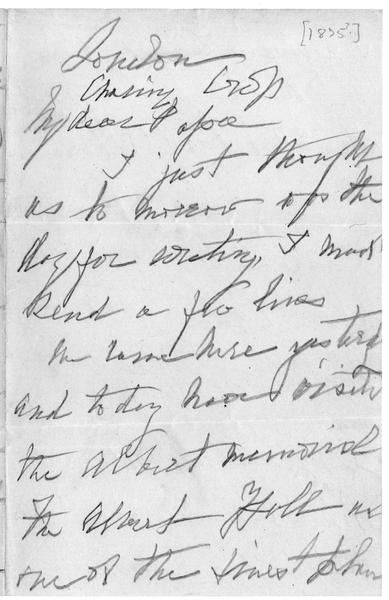 [1875?]
London
Charing Cross
My dear Papa
I just thought
as to morrow was the
day for writing, I must
send a few lines
We came here yesterd
and today have visite
the Albert Memorial
The Albert Hall is
one of the finest